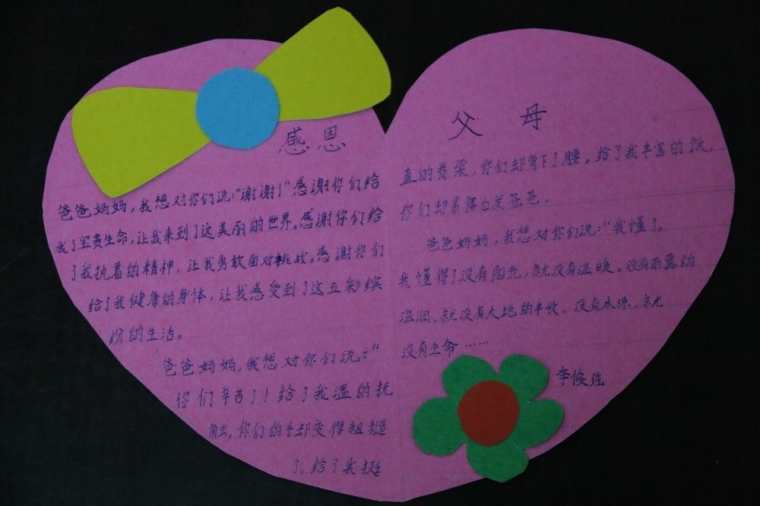 感恩
爸爸妈妈,我想对你们说:“谢谢!”感谢你们给
我了宝贵生命,让我来到了这美丽的世界。感谢你们给
了我执着的精神,让我勇敢面对挑战。感谢你们
给了我健康的身体,让我感受到了这五彩缤
纷的生活。
爸爸妈妈,我想对你们说:“
你们辛苦了!给了我温的抚
触,你们的手却变得粗糙
了。给了我挺
父母
直的脊梁,你们却弯下了腰,给了我丰富的
你们却
爸爸妈妈,我想对你们说:“我懂了。
我懂得了没有阳光,就没有温暖。没有雨露的
滋润,就没有大地的丰收。没有水源,就
没有生命……
李俊